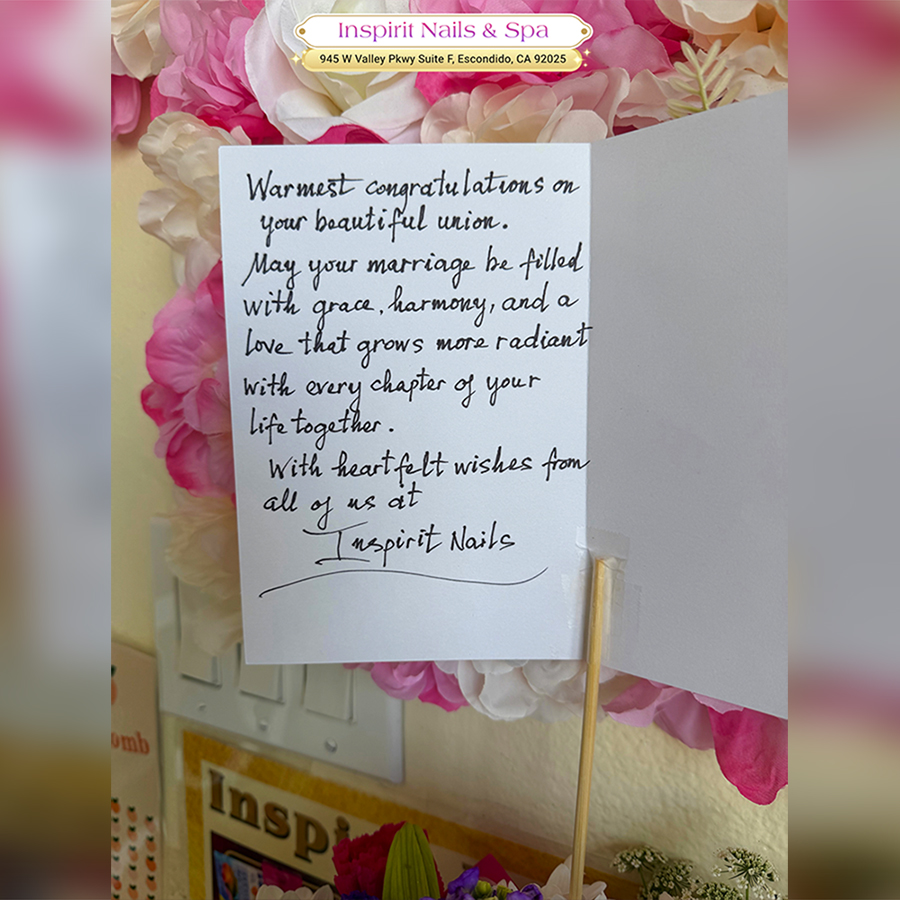 Inspirit Nails & Spa
945 W Valley Pkwy Suite F, Escondido, CA 92025
Warmest congratulations on
your beautiful union.
May your marriage be filled
with grace, harmony, and a
love that grows more radiant
with every chapter of your
life together.
With heartfelt wishes from
all of us at
Inspirit Nails
omb
Inspi